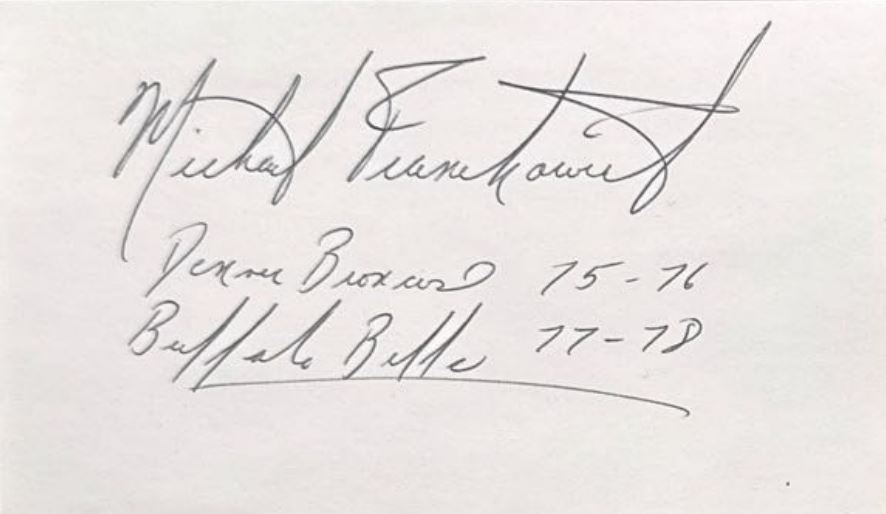 Michael Franckowiak
Denver Broncos 75-76
Buffalo Bills 77-78